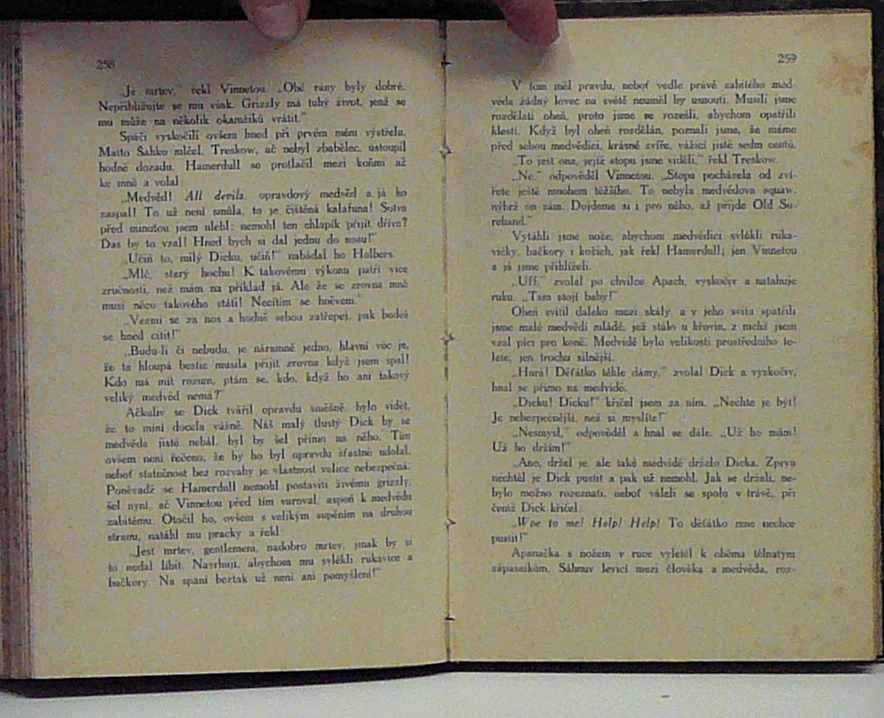 258
„Je mrtev,“ řekl Vinnetou. „Obě rány byly dobré.
Nepřibližujte se mu však. Grizzly má tuhý život, jenž se
mu může na několik okamžiků vrátit.“
Spáči vyskočili ovšem hned při prvém mém výstřelu.
Matto Šahko mlčel, Treskow, ač nebyl zbabělec, ustoupil
hodně dozadu. Hamerdull se protlačil mezi koňmi až
ke mně a volal:
„Medvěd! All devils, opravdový medvěd a já ho
zaspal! To už není smůla, to je čištěná kalafuna! Sotva
před minutou jsem ulehl; nemohl ten chlapík přijít dříve?
Das by to vzal! Hned bych si dal jednu do nosu!“
„Učiň to, milý Dicku, učiň!“ nabádal ho Holbers.
„Mlč, starý hochu! K takovému výkonu patří více
zručnosti, než mám na příklad já. Ale že se zrovna mně
musí něco takového státi! Necítím se hněvem.“
„Vezmi se za nos a hodně sebou zatřepej, pak budeš
se hned cítit!“
„Budu-li či nebudu, je náramně jedno, hlavní věc je,
že ta hloupá bestie musila přijít zrovna když jsem spal!
Kdo má mít rozum, ptám se, kdo, když ho ani takový
veliký medvěd nemá?“
Ačkoliv se Dick tvářil opravdu směšně, bylo vidět,
že to míní docela vážně. Náš malý tlustý Dick by se
medvěda jistě nebál, byl by šel přímo na něho. Tím
ovšem není řečeno, že by ho byl opravdu šťastně udolal,
neboť statečnost bez rozvahy je vlastnost velice nebezpečná.
Poněvadž se Hamerdull nemohl postaviti živému grizzly,
šel nyní, ač Vinnetou před tím varoval, aspoň k medvědu
zabitému. Otočil ho, ovšem s velikým supěním na druhou
stranu, natáhl mu pracky a řekl:
„Jest mrtev, gentlemeni, nadobro mrtev, jinak by si
to nedal líbit. Navrhuji, abychom mu svlékli rukavice a
bačkory. Na spaní beztak už není ani pomyšlení!“
259
V tom měl pravdu, neboť vedle právě zabitého med-
věda žádný lovec na světě neuměl by usnouti. Musili jsme
rozdělati oheň, proto jsme se rozešli, abychom opatřili
klestí. Když byl oheň rozdělán, poznali jsme, že máme
před sebou medvědici, krásné zvíře, vážící jistě sedm centů.
„To jest ona, jejíž stopu jsme viděli,“ řekl Treskow.
„Ne,“ odpověděl Vinnetou. „Stopa pocházela od zví-
řete ještě mnohem těžšího. To nebyla medvědova squaw,
nýbrž on sám. Dojdeme si i pro něho, až přijde Old Su-
rehand.“
Vytáhli jsme nože, abychom medvědici svlékli ruka-
vičky, bačkory i kožich, jak řekl Hamerdull; jen Vinnetou
a já jsme přihlíželi.
„Uff,“ zvolal po chvilce Apach, vyskočiv a natahuje
ruku. „Tam stojí baby!“
Oheň svítil daleko mezi skály, a v jeho svitu spatřili
jsme malé medvědí mládě, jež stálo u křovin, z nichž jsem
vzal píci pro koně. Medvídě bylo velikosti prostředního te-
lete, jen trochu silnější.
„Hurá! Děťátko téhle dámy,“ zvolal Dick a vyskočiv,
hnal se přímo na medvídě.
„Dicku! Dicku!“ křičel jsem za ním. „Nechte je být!
Je nebezpečnější, než si myslíte!“
„Nesmysl,“ odpověděl a hnal se dále. „Už ho mám!
Už ho držím!“
„Ano, držel je, ale také medvídě drželo Dicka. Zprvu
nechtěl je Dick pustit a pak už nemohl. Jak se drželi, ne-
bylo možno rozeznati, neboť váleli se spolu v trávě, při
čemž Dick křičel.
„Woe to me! Help! Help! To děťátko mne nechce
pustit!“
Apanačka s nožem v ruce vyletěl k oběma tělnatým
zápasníkům. Sáhnuv levicí mezi člověka a medvěda, roz-